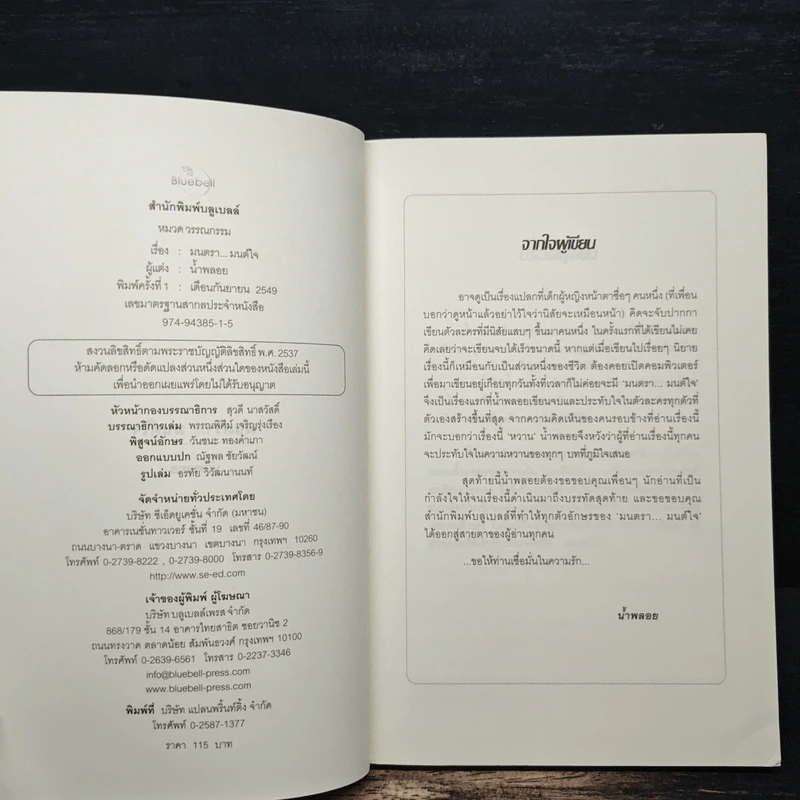 Bluebell
สำนักพิมพ์บลูเบลล์
หมวด วรรณกรรม
เรื่อง : มนตรา... มนต์ใจ
ผู้แต่ง : น้ำพลอย
พิมพ์ครั้งที่ 1 : เดือนกันยายน 2549
เลขมาตรฐานสากลประจำหนังสือ
974-94385-1-5
สงวนลิขสิทธิ์ตามพระราชบัญญัติลิขสิทธิ์ พ.ศ. 2537
ห้ามคัดลอกหรือดัดแปลงส่วนหนึ่งส่วนใดของหนังสือเล่มนี้
เพื่อนำออกเผยแพร่โดยไม่ได้รับอนุญาต
หัวหน้ากองบรรณาธิการ สุวดี นาสวัสดิ์
บรรณาธิการเล่ม พรรณพิศีม์ เจริญรุ่งเรือง
พิสูจน์อักษร วันชนะ ทองคำเภา
ออกแบบปก ณัฐพล ชัยวัฒน์
รูปเล่ม อรทัย วิวัฒนานนท์
จัดจำหน่ายทั่วประเทศโดย
บริษัท ซีเอ็ดยูเคชั่น จำกัด (มหาชน)
อาคารเนชั่นทาวเวอร์ ชั้นที่ 19 เลขที่ 46/87-90
ถนนบางนา-ตราด แขวงบางนา เขตบางนา กรุงเทพฯ 10260
โทรศัพท์ 0-2739-8222 , 0-2739-8000 โทรสาร 0-2739-8356-9
http://www.se-ed.com
เจ้าของผู้พิมพ์ ผู้โฆษณา
บริษัท บลูเบลล์เพรส จำกัด
868/179 ชั้น 14 อาคารไทยสาธิต ซอยวานิช 2
ถนนทรงวาด ตลาดน้อย สัมพันธวงศ์ กรุงเทพฯ 10100
โทรศัพท์ 0-2639-6561 โทรสาร 0-2237-3346
info@bluebell-press.com
www.bluebell-press.com
พิมพ์ที่ บริษัท แปลนพริ้นท์ติ้ง จำกัด
โทรศัพท์ 0-2587-1377
ราคา 115 บาท
จากใจผู้เขียน
อาจดูเป็นเรื่องแปลกที่เด็กผู้หญิงหน้าตาซื่อๆ คนหนึ่ง (ที่เพื่อน
บอกว่าดูหน้าแล้วอย่าไว้ใจว่านิสัยจะเหมือนหน้า) คิดจะจับปากกา
เขียนตัวละครที่มีนิสัยแสบๆ ขึ้นมาคนหนึ่ง ในครั้งแรกที่ได้เขียนไม่เคย
คิดเลยว่าจะเขียนจบได้เร็วขนาดนี้ หากแต่เมื่อเขียนไปเรื่อยๆ นิยาย
เรื่องนี้ก็เหมือนกับเป็นส่วนหนึ่งของชีวิต ต้องคอยเปิดคอมพิวเตอร์
เพื่อมาเขียนอยู่เกือบทุกวันทั้งที่เวลาก็ไม่ค่อยจะมี 'มนตรา... มนต์ใจ'
จึงเป็นเรื่องแรกที่น้ำพลอยเขียนจบและประทับใจในตัวละครทุกตัวที่
ตัวเองสร้างขึ้นที่สุด จากความคิดเห็นของคนรอบข้างที่อ่านเรื่องนี้
มักจะบอกว่าเรื่องนี้ 'หวาน' น้ำพลอยจึงหวังว่าผู้ที่อ่านเรื่องนี้ทุกคน
จะประทับใจในความหวานของทุกๆ บทที่ภูมิใจเสนอ
สุดท้ายนี้น้ำพลอยต้องขอขอบคุณเพื่อนๆ นักอ่านที่เป็น
กำลังใจให้จนเรื่องนี้ดำเนินมาถึงบรรทัดสุดท้าย และขอขอบคุณ
สำนักพิมพ์บลูเบลล์ที่ทำให้ทุกตัวอักษรของ 'มนตรา... มนต์ใจ'
ได้ออกสู่สายตาของผู้อ่านทุกคน
...ขอให้ท่านเชื่อมั่นในความรัก...
น้ำพลอย